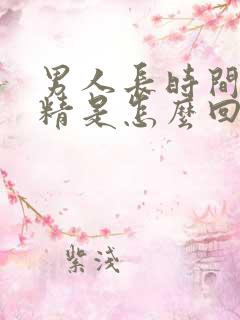 男人長時間
精是怎麼回
紫淺